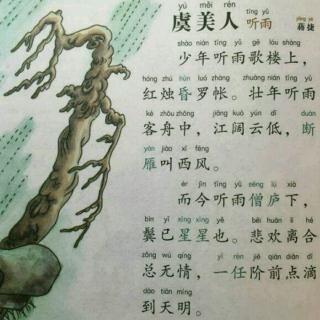 yú měi rén tīng yǔ jiǎng jié
虞美人 听雨 蒋捷
shào nián tīng yǔ gē lóu shàng
少年听雨歌楼上，
hóng zhú hūn luó zhàng zhuàng nián tīng yǔ
红烛昏罗帐。壮年听雨
kè zhōu zhōng jiāng kuò yún dī duàn
客舟中，江阔云低，断
yàn jiào xī fēng
雁叫西风。
ér jīn tīng yǔ sēng lú xià
而今听雨僧庐下，
bìn yǐ xīng xīng yě bēi huān lí hé
鬓已星星也。悲欢离合
zǒng wú qíng yí rèn jiē qián diǎn dī
总无情，一任阶前点滴
dào tiān míng
到天明。